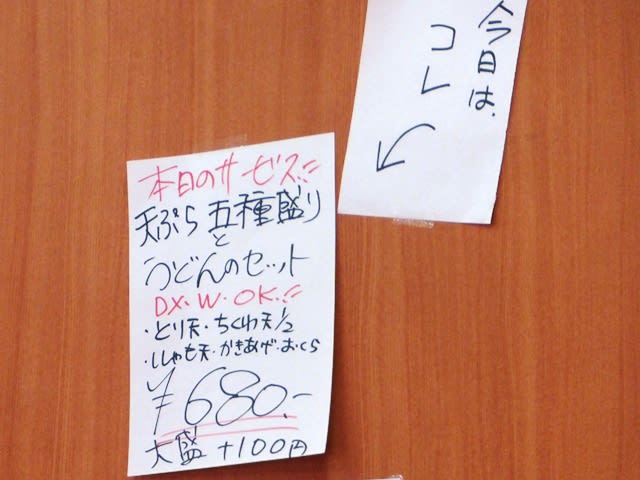 今日は、
コレ
本日のサービス!!
天ぷら五種盛り
と
うどんのセット
DX・W・OK!!
・とり天・ちくわ天1/2
・ししゃも天・かきあげ・おくら
¥680.-
大盛 +100円